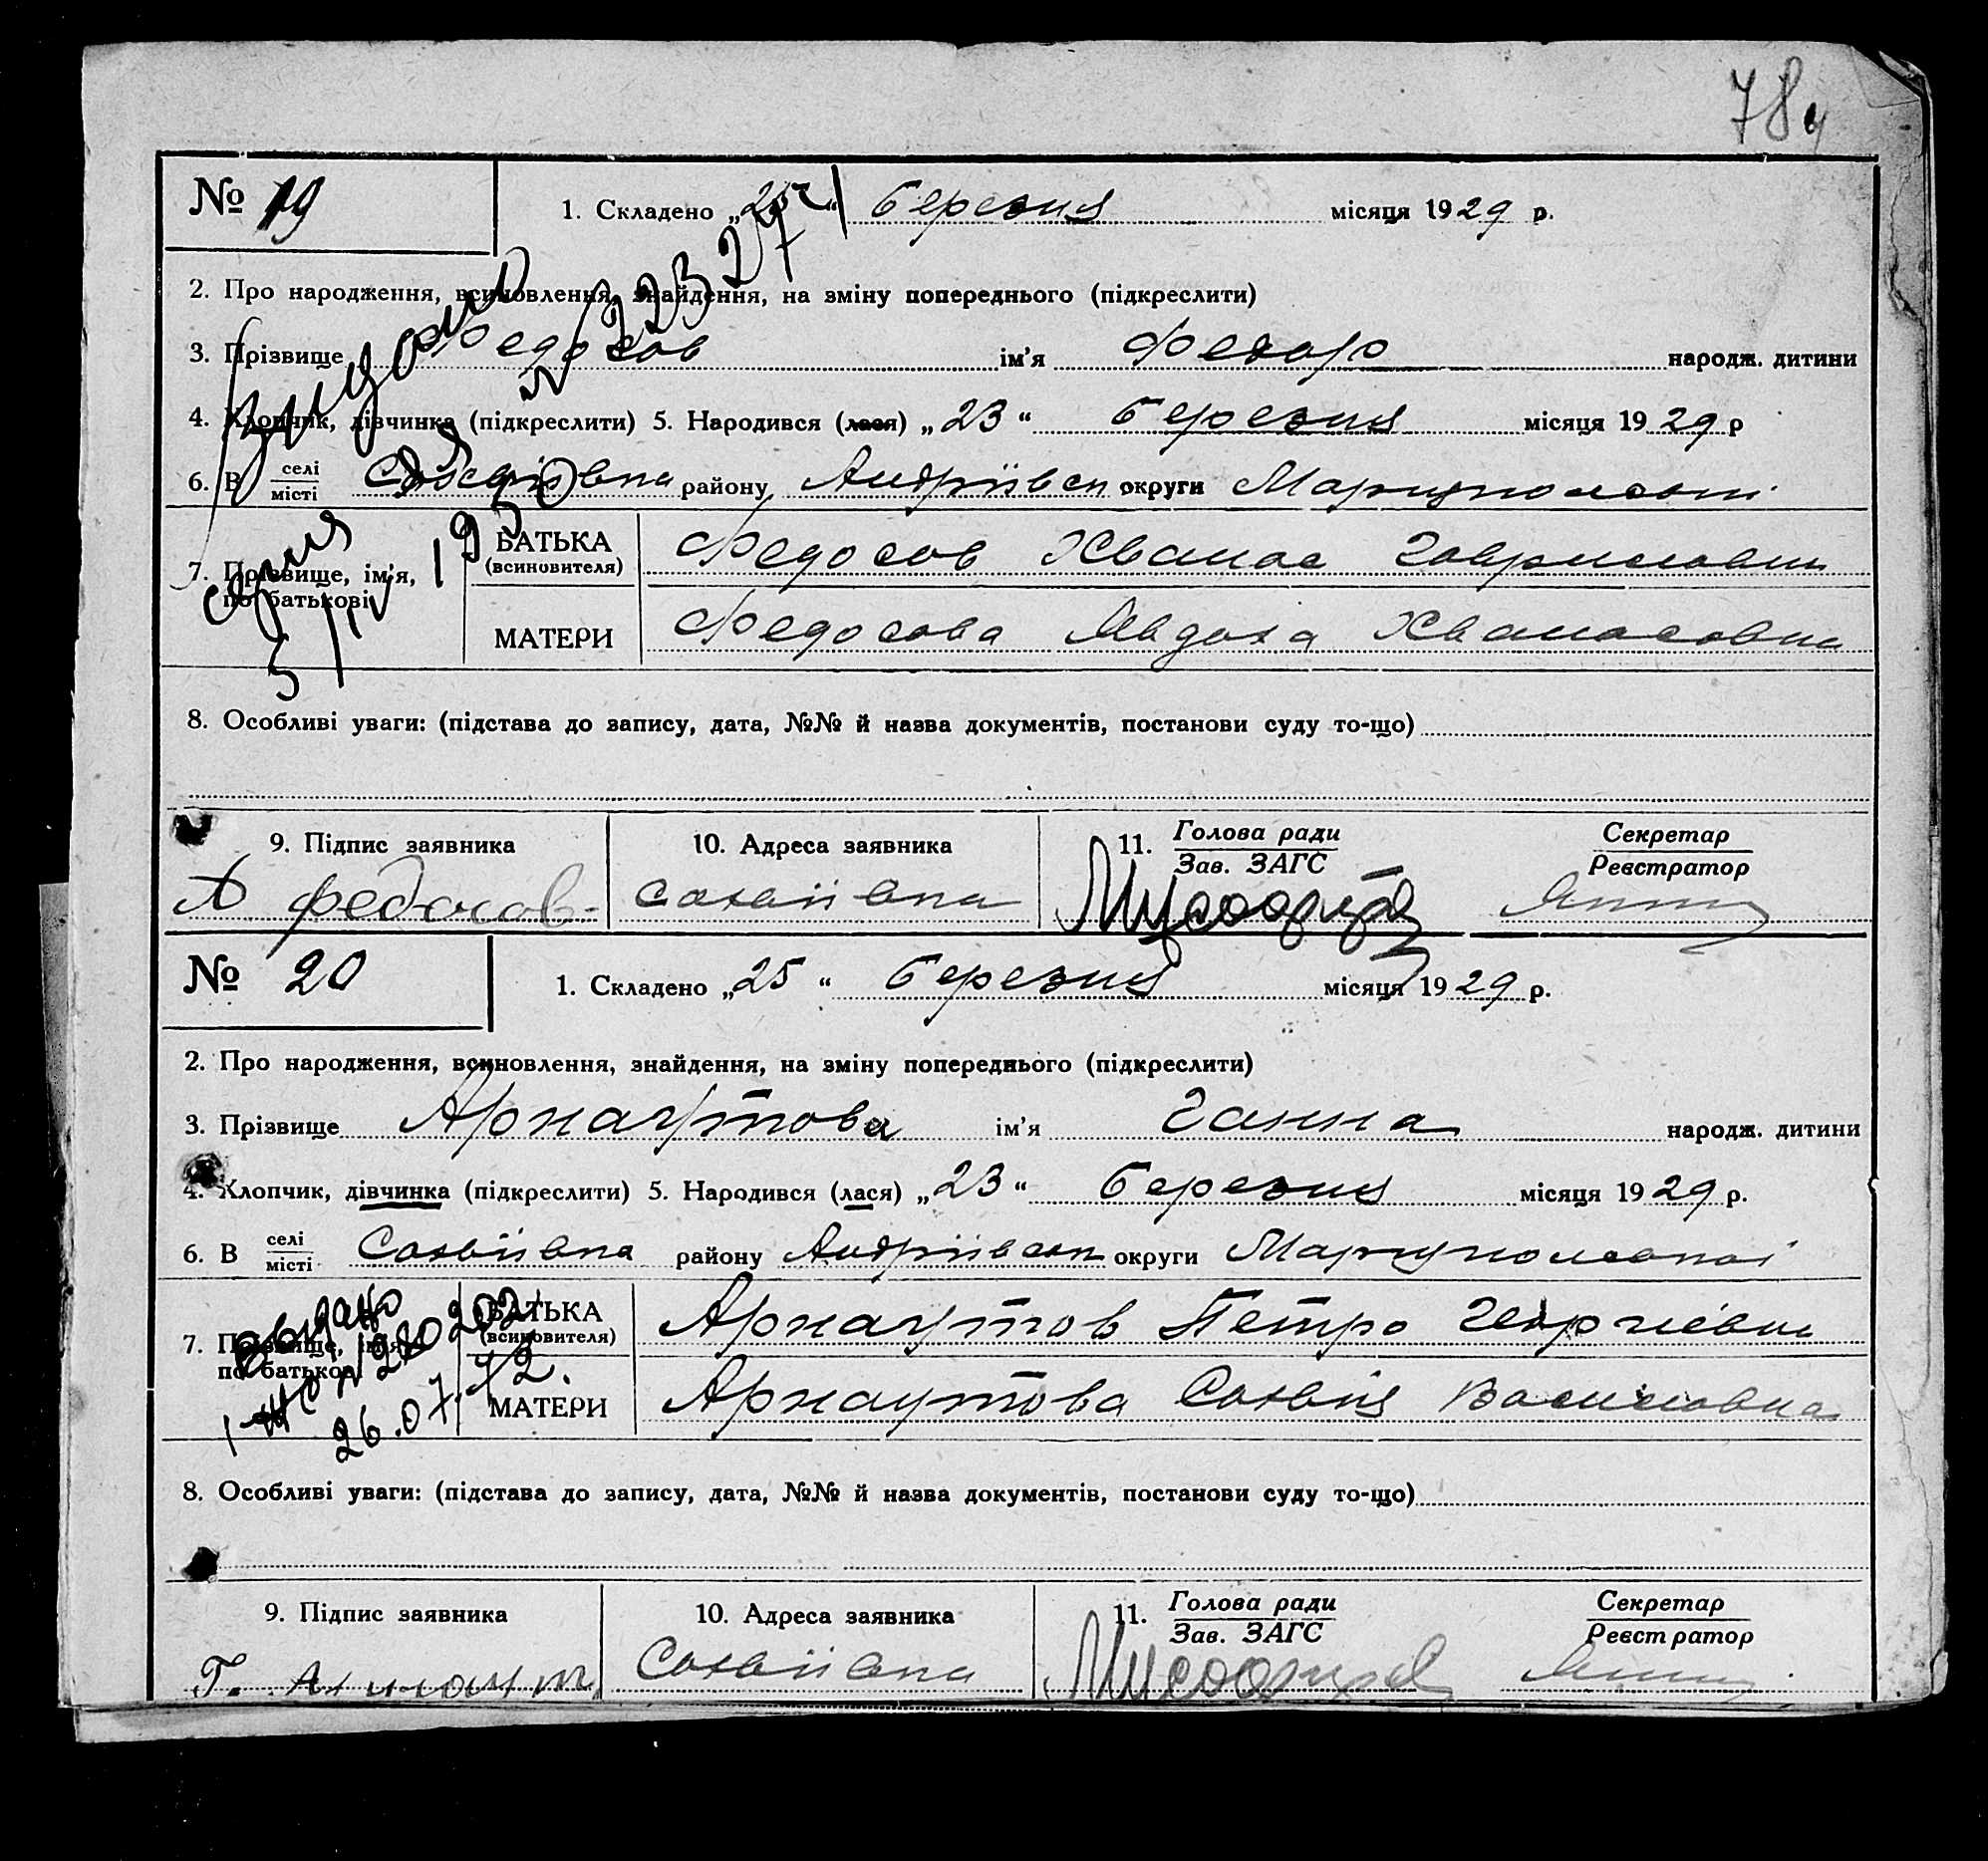 78
№ 19 1. Складено „25“ березня місяця 1929 р.
2. Про народження, всиновлення, знайдення, на зміну попереднього (підкреслити)
3. Прізвище Федосов ім’я Федор народж. дитини
4. Хлопчик, дівчинка (підкреслити) 5. Народився (лася) „23“ березня місяця 1929 р
6. В селі / місті Софіївка району Андріївськ округи Маріупольської
7. Прізвище, ім’я, по батькові
БАТЬКА (всиновителя) Федосов Хванас Гаврилович
МАТЕРИ Федосова Авдоха Хванасовна
8. Особливі уваги: (підстава до запису, дата, №№ й назва документів, постанови суду то-що)
9. Підпис заявника 10. Адреса заявника 11. Голова ради / Зав. ЗАГС Секретар / Реєстратор
А Федосов Сохвіївка
№ 20 1. Складено „25“ березня місяця 1929 р.
2. Про народження, всиновлення, знайдення, на зміну попереднього (підкреслити)
3. Прізвище Арнаутова ім’я Ганна народж. дитини
4. Хлопчик, дівчинка (підкреслити) 5. Народився (лася) „23“ березня місяця 1929 р.
6. В селі / місті Сохвіївка району Андріївськ округи Маріупольської
7. Прізвище, ім’я, по батькові
БАТЬКА (всиновителя) Арнаутов Петро Георгієвич
МАТЕРИ Арнаутова Сохвія Василовна
26.07.72.
8. Особливі уваги: (підстава до запису, дата, №№ й назва документів, постанови суду то-що)
9. Підпис заявника 10. Адреса заявника 11. Голова ради / Зав. ЗАГС Секретар / Реєстратор
Сохвіївка